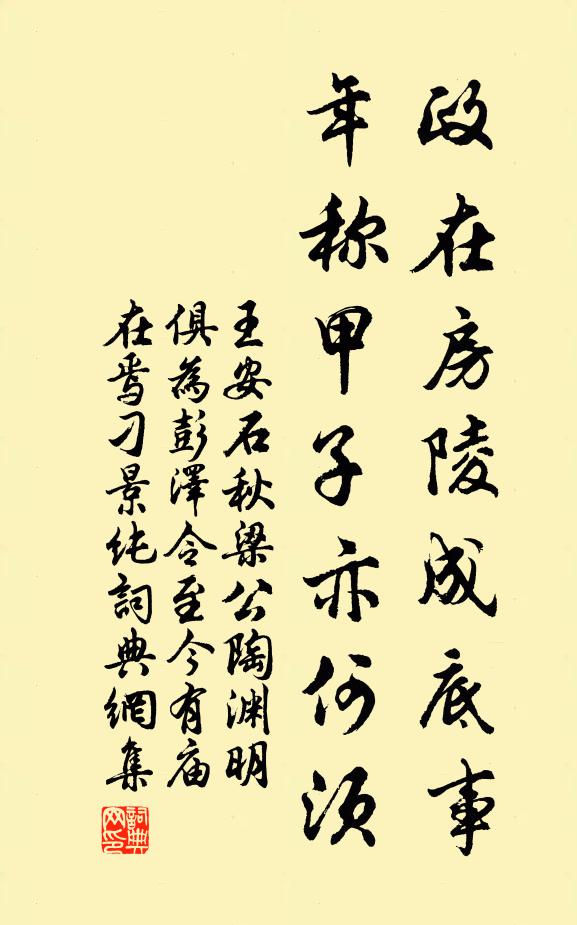 政在房陵成底事
年称甲子亦何须
王安石秋梁公陶渊明
俱為彭澤令至今有庙
在焉刁景纯詞典網集
詞典
网印